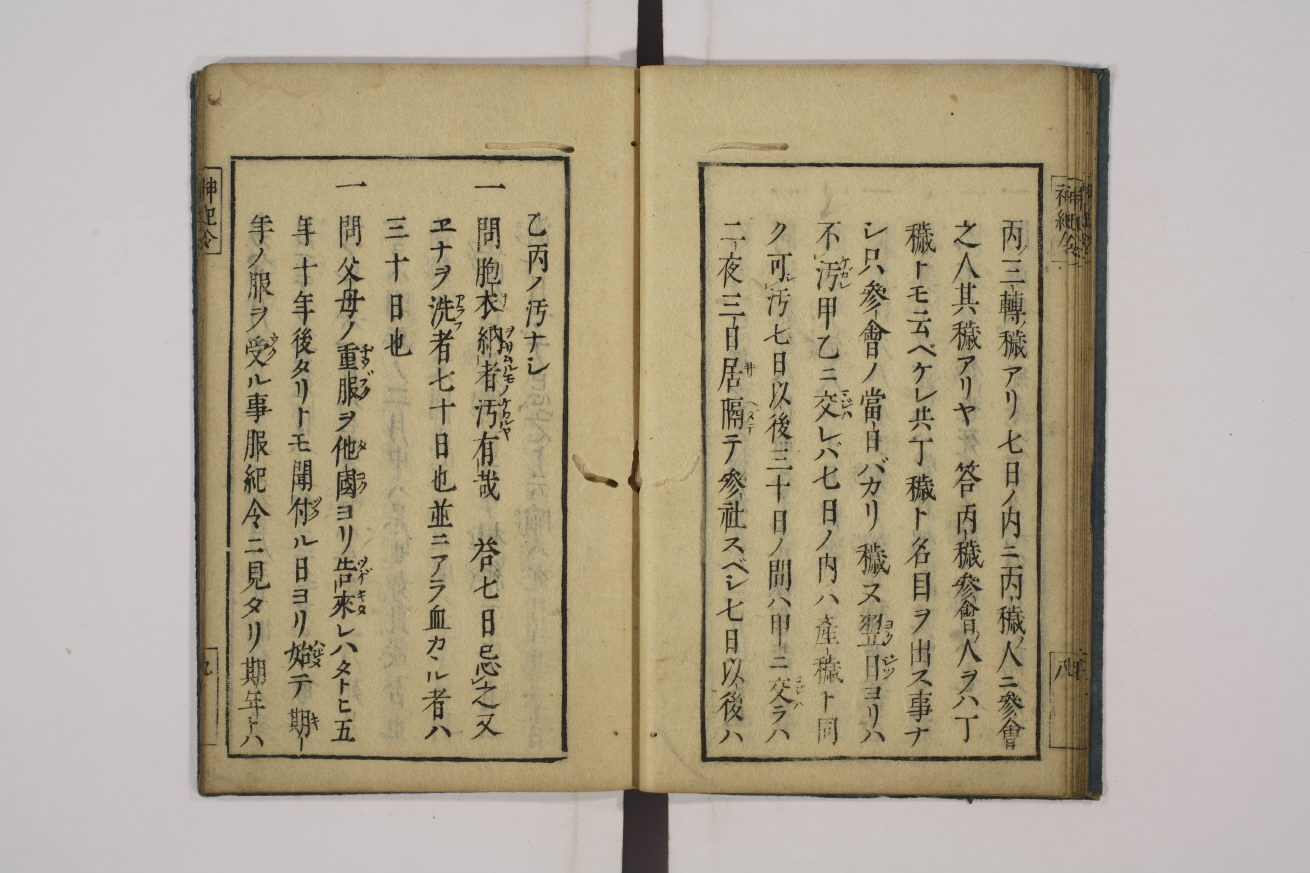 丙三轉穢アリ七日ノ内ニ丙穢ノ人ニ參會
之人其穢アリヤ 答丙穢參會ノ人ヲハ丁
穢トモ云ベケレ共丁穢ト名目ヲ出ス事ナ
シ只參會ノ當日バカリ穢ス翌日ヨリハ
不汚甲乙ニ交レバ七日ノ内ハ產穢ト同
ク可汚七日以後三十日ノ間ハ甲ニ交ラハ
二夜三日居隔テ參社スベシ七日以後ハ
乙丙ノ汚ナシ
一 問胞衣納者汚有哉 答七日忌之又
ヱナヲ洗者七十日也並ニアラ血カヽル者ハ
三十日也
一 問父母ノ重服ヲ他國ヨリ告來レハタトヒ五
年十年後タリトモ聞付ル日ヨリ始テ期
年ノ服ヲ受ル事服紀令ニ見タリ期年トハ
神紀令
八
九